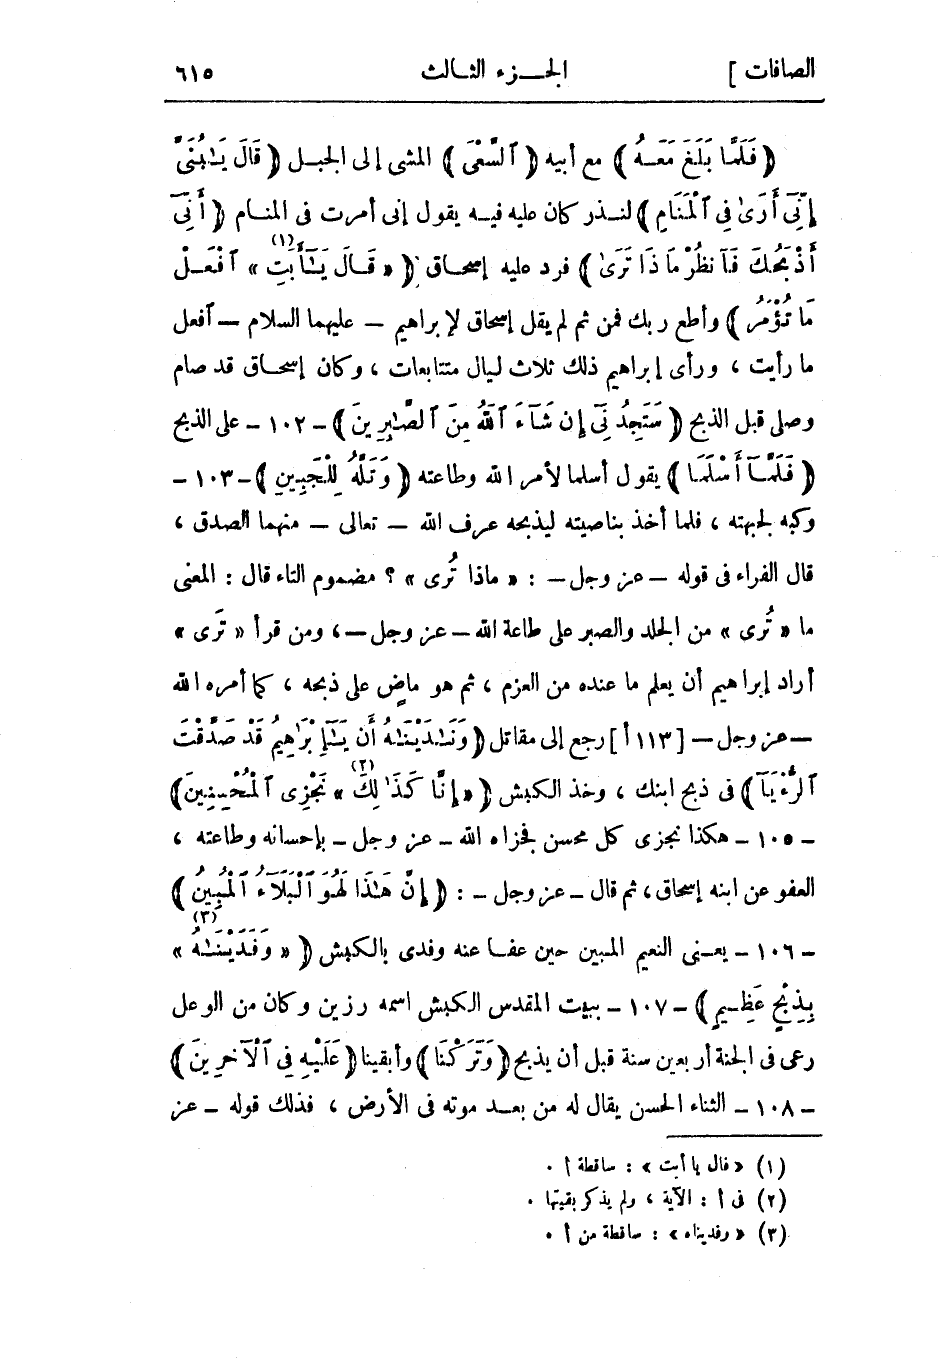 الصافات ] الجـــزء الثـالث ٦١٥
﴿ فَلَمَّا بَلَغَ مَعَـهُ ﴾ مع أبيه ﴿ ٱلسَّعْىَ ﴾ المشى إلى الجبـل ﴿ قَالَ يَـٰبُنَىَّ
إِنِّىٓ أَرَىٰ فِى ٱلْمَنَامِ ﴾ لنـذر كان عليه فيـه يقول إنى أمرت فى المنـام ﴿ أَنِّىٓ
أَذْبَحُكَ فَٱنظُرْ مَا ذَا تَرَىٰ ﴾ فرد عليه إسحـاق ﴿ « قَـالَ يَـٰٓأَبَتِ » (١) ٱفْعَـلْ
مَا تُؤْمَرُ ﴾ وأطع ربك فمن ثم لم يقل إسحاق لإبراهيم — عليهما السلام — ٱفعل
ما رأيت ، ورأى إبراهيم ذلك ثلاث ليال متتابعات ، وكان إسحـاق قد صام
وصلى قبل الذبح ﴿ سَتَجِدُنِىٓ إِن شَآءَ ٱللَّهُ مِنَ ٱلصَّـٰبِرِينَ ﴾ - ١٠٢ - على الذبح
﴿ فَلَمَّـآ أَسْلَمَا ﴾ يقول أسلما لأمر الله وطاعته ﴿ وَتَلَّهُ لِلْجَبِينِ ﴾ - ١٠٣ -
وكبه لجبهته ، فلما أخذ بناصيته ليذبحه عرف الله — تعالى — منهما الصدق ،
قال الفراء فى قوله — عز وجل — : « ماذا تُرى » ؟ مضموم التاء قال : المعنى
ما « تُرى » من الجلد والصبر على طاعة الله — عز وجل — ، ومن قرأ « تَرى »
أراد إبراهيم أن يعلم ما عنده من العزم ، ثم هو ماضٍ على ذبحه ، كما أمره الله
— عز وجل — [ ١١٣ أ ] رجع إلى مقاتل ﴿ وَنَـٰدَيْنَـٰهُ أَن يَـٰٓإِبْرَٰهِيمُ قَدْ صَدَّقْتَ
ٱلرُّءْيَآ ﴾ فى ذبح ابنك ، وخذ الكبش ﴿ « إِنَّا كَذَٰلِكَ » (٢) نَجْزِى ٱلْمُحْسِنِينَ ﴾
- ١٠٥ - هكذا نجزى كل محسن فجزاه الله - عز وجل - بإحسانه وطاعته ،
العفو عن ابنه إسحاق ، ثم قال - عز وجل - : ﴿ إِنَّ هَـٰذَا لَهُوَ ٱلْبَلَـٰٓءُ ٱلْمُبِينُ ﴾
- ١٠٦ - يعـنى النعيم المبين حين عفـا عنه وفدى بالكبش ﴿ « وَفَدَيْنَـٰهُ » (٣)
بِذِبْحٍ عَظِـيمٍ ﴾ - ١٠٧ - ببيت المقدس الكبش اسمه رزين وكان من الوعل
رعى فى الجنة أربعين سنة قبل أن يذبح ﴿ وَتَرَكْنَا ﴾ وأبقينا ﴿ عَلَيْهِ فِى ٱلْـَٔاخِرِينَ ﴾
- ١٠٨ - الثناء الحسن يقال له من بعـد موته فى الأرض ، فذلك قوله - عز
(١) « قال يا أبت » : ساقطة أ .
(٢) فى أ : الآية ، ولم يذكر بقيتها .
(٣) « وفديناه » : ساقطة من أ .